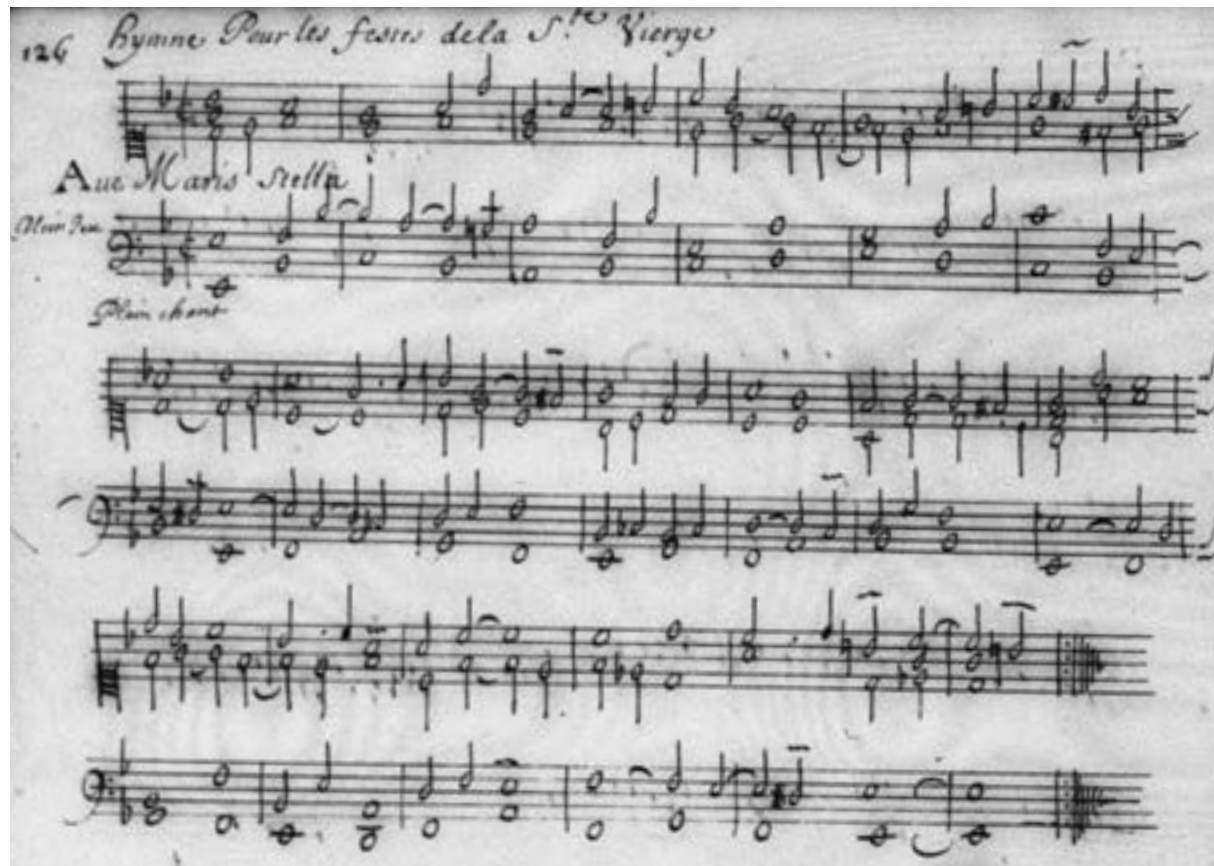 126 hymne Pour les festes de la S.te Vierge
Ave Maris stella
Plein Jeu
Plein chant